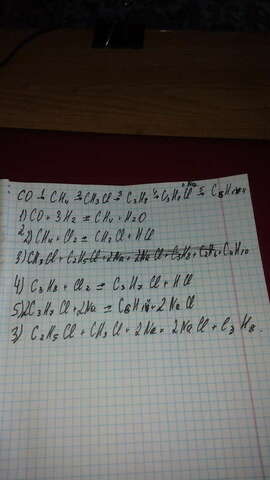 CO 1→ CH4 2→ CH3Cl 3→ C3H8 4→ C3H7Cl 5→ C6H14
1) CO + 3H2 = CH4 + H2O
2) CH4 + Cl2 = CH3Cl + HCl
4) C3H8 + Cl2 = C3H7Cl + HCl
5) 2C3H7Cl + 2Na = C6H14 + 2NaCl
3) C2H5Cl + CH3Cl + 2Na = 2NaCl + C3H8.